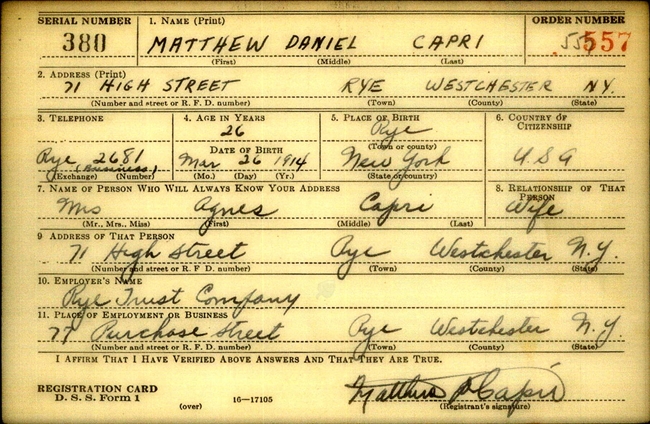 SERIAL NUMBER 1. NAME (Print) ORDER NUMBER
380 MATTHEW DANIEL CAPRI 557
(First) (Middle) (Last)
2. ADDRESS (Print)
71 HIGH STREET RYE WESTCHESTER NY.
(Number and street or R. F. D. number) (Town) (County) (State)
3. TELEPHONE 4. AGE IN YEARS 5. PLACE OF BIRTH 6. COUNTRY OF CITIZENSHIP
26 Rye
DATE OF BIRTH (Town or county)
Rye 2681 Mar 26 1914 New York U.S.A
(Business)
(Exchange) (Number) (Mo.) (Day) (Yr.) (State or country)
7. NAME OF PERSON WHO WILL ALWAYS KNOW YOUR ADDRESS 8. RELATIONSHIP OF THAT PERSON
Mrs Agnes Capri Wife
(Mr., Mrs., Miss) (First) (Middle) (Last)
9 ADDRESS OF THAT PERSON
71 High Street Rye Westchester N.Y.
(Number and street or R. F. D. number) (Town) (County) (State)
10. EMPLOYER'S NAME
Rye Trust Company
11. PLACE OF EMPLOYMENT OR BUSINESS
77 Purchase Street Rye Westchester N.Y.
(Number and street or R. F. D. number) (Town) (County) (State)
I AFFIRM THAT I HAVE VERIFIED ABOVE ANSWERS AND THAT THEY ARE TRUE.
REGISTRATION CARD Matthew D Capri
D. S. S. Form 1 (over) 16—17105 (Registrant's signature)